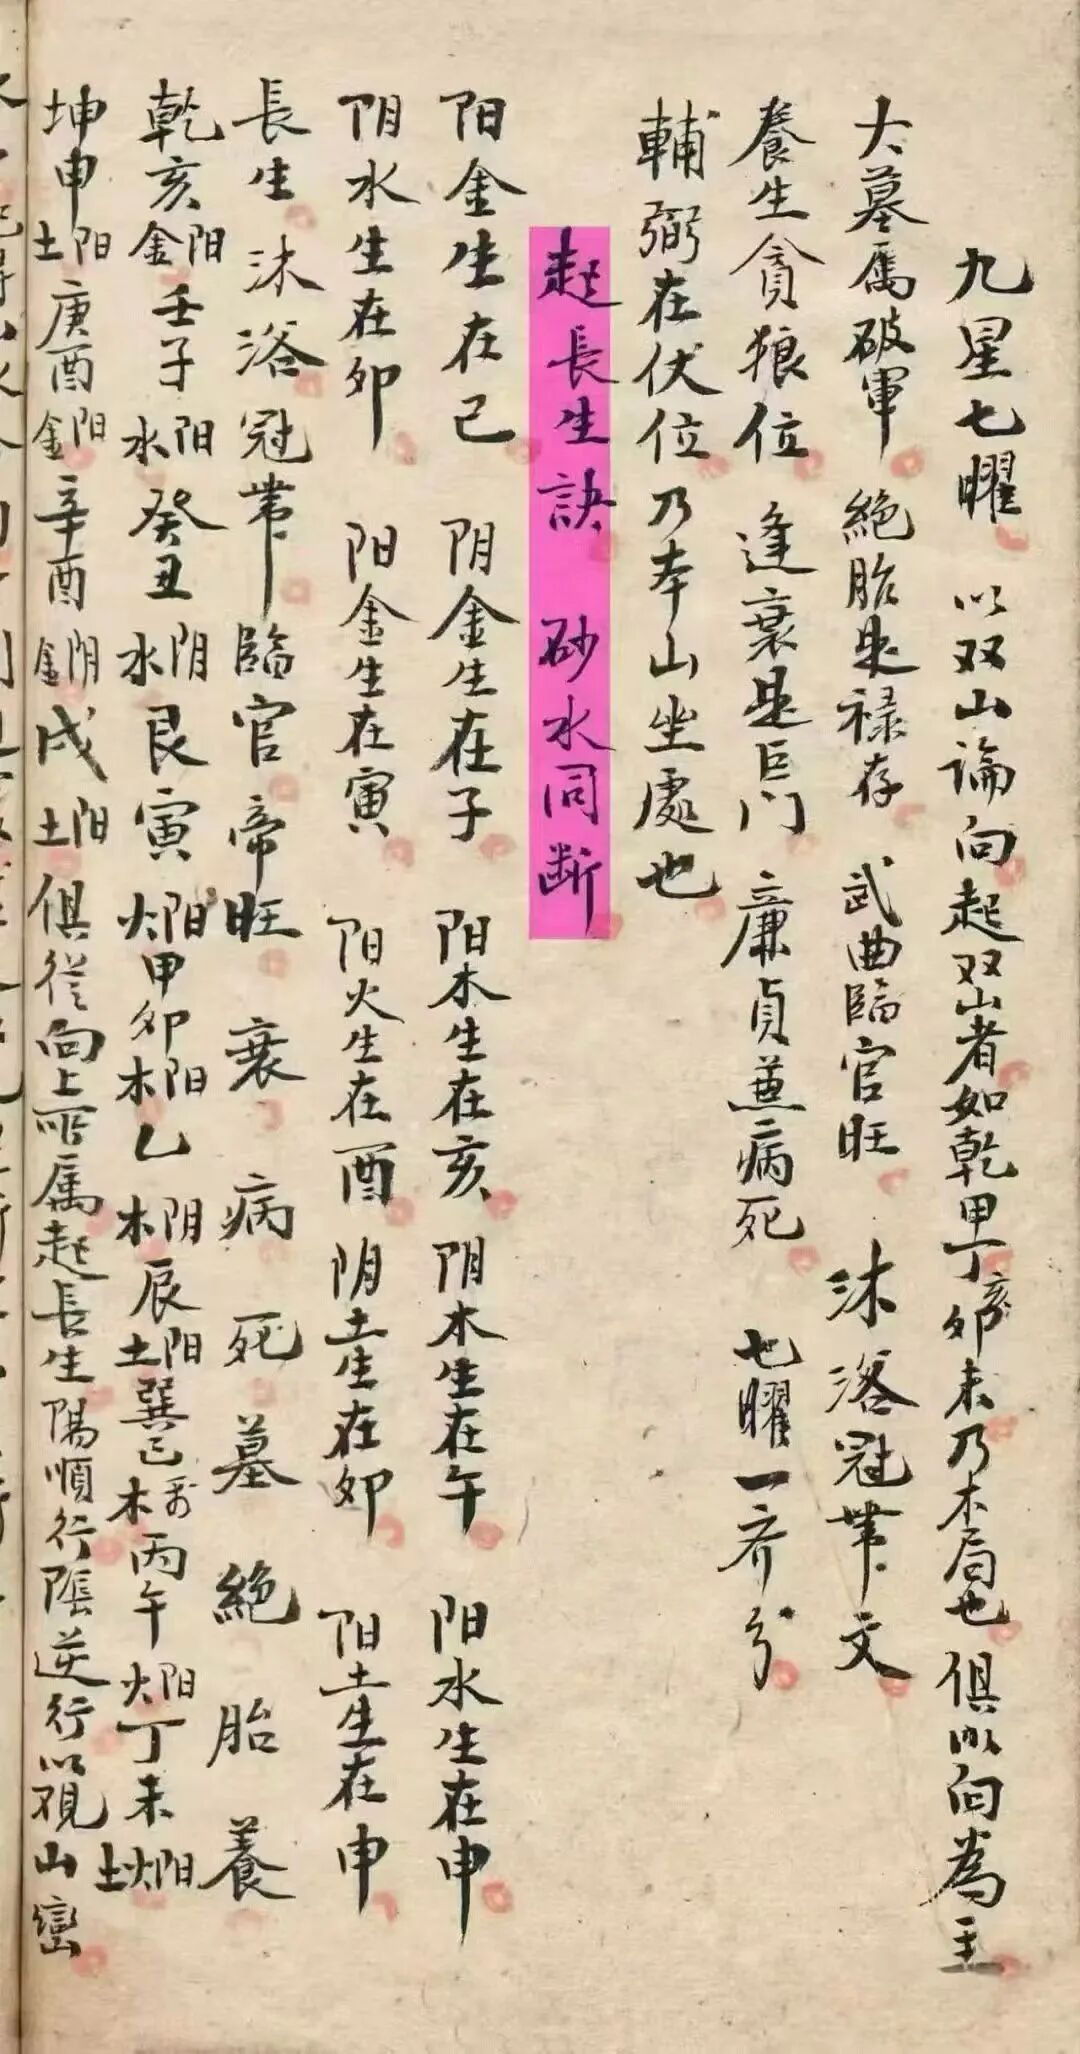 九星七曜 以双山論向起双山者如乾甲丁亥卯未乃木局也俱以向為主
大墓属破軍 絕胎是禄存 武曲臨官旺 沐浴冠带文
養生貪狼位 逢衰是巨门 廉貞兼病死 七曜一齐分
輔弼在伏位乃本山坐處也
起長生訣 砂水同断
阳金生在巳 阴金生在子 阳木生在亥 阴木生在午 阳水生在申
阴水生在卯 阳金生在寅 阳火生在酉 阴土生在卯 阳土生在申
長生沐浴冠带臨官帝旺衰病死墓絕胎養
乾亥阳金壬子阳水癸丑阴水艮寅阳火甲卯阳木乙阴木辰阳土巽巳木丙午阳火丁未阳火土
坤申阳土庚酉阳金辛酉阴金戌阳土俱從向上所属起長生陽順行陰逆行以观山巒